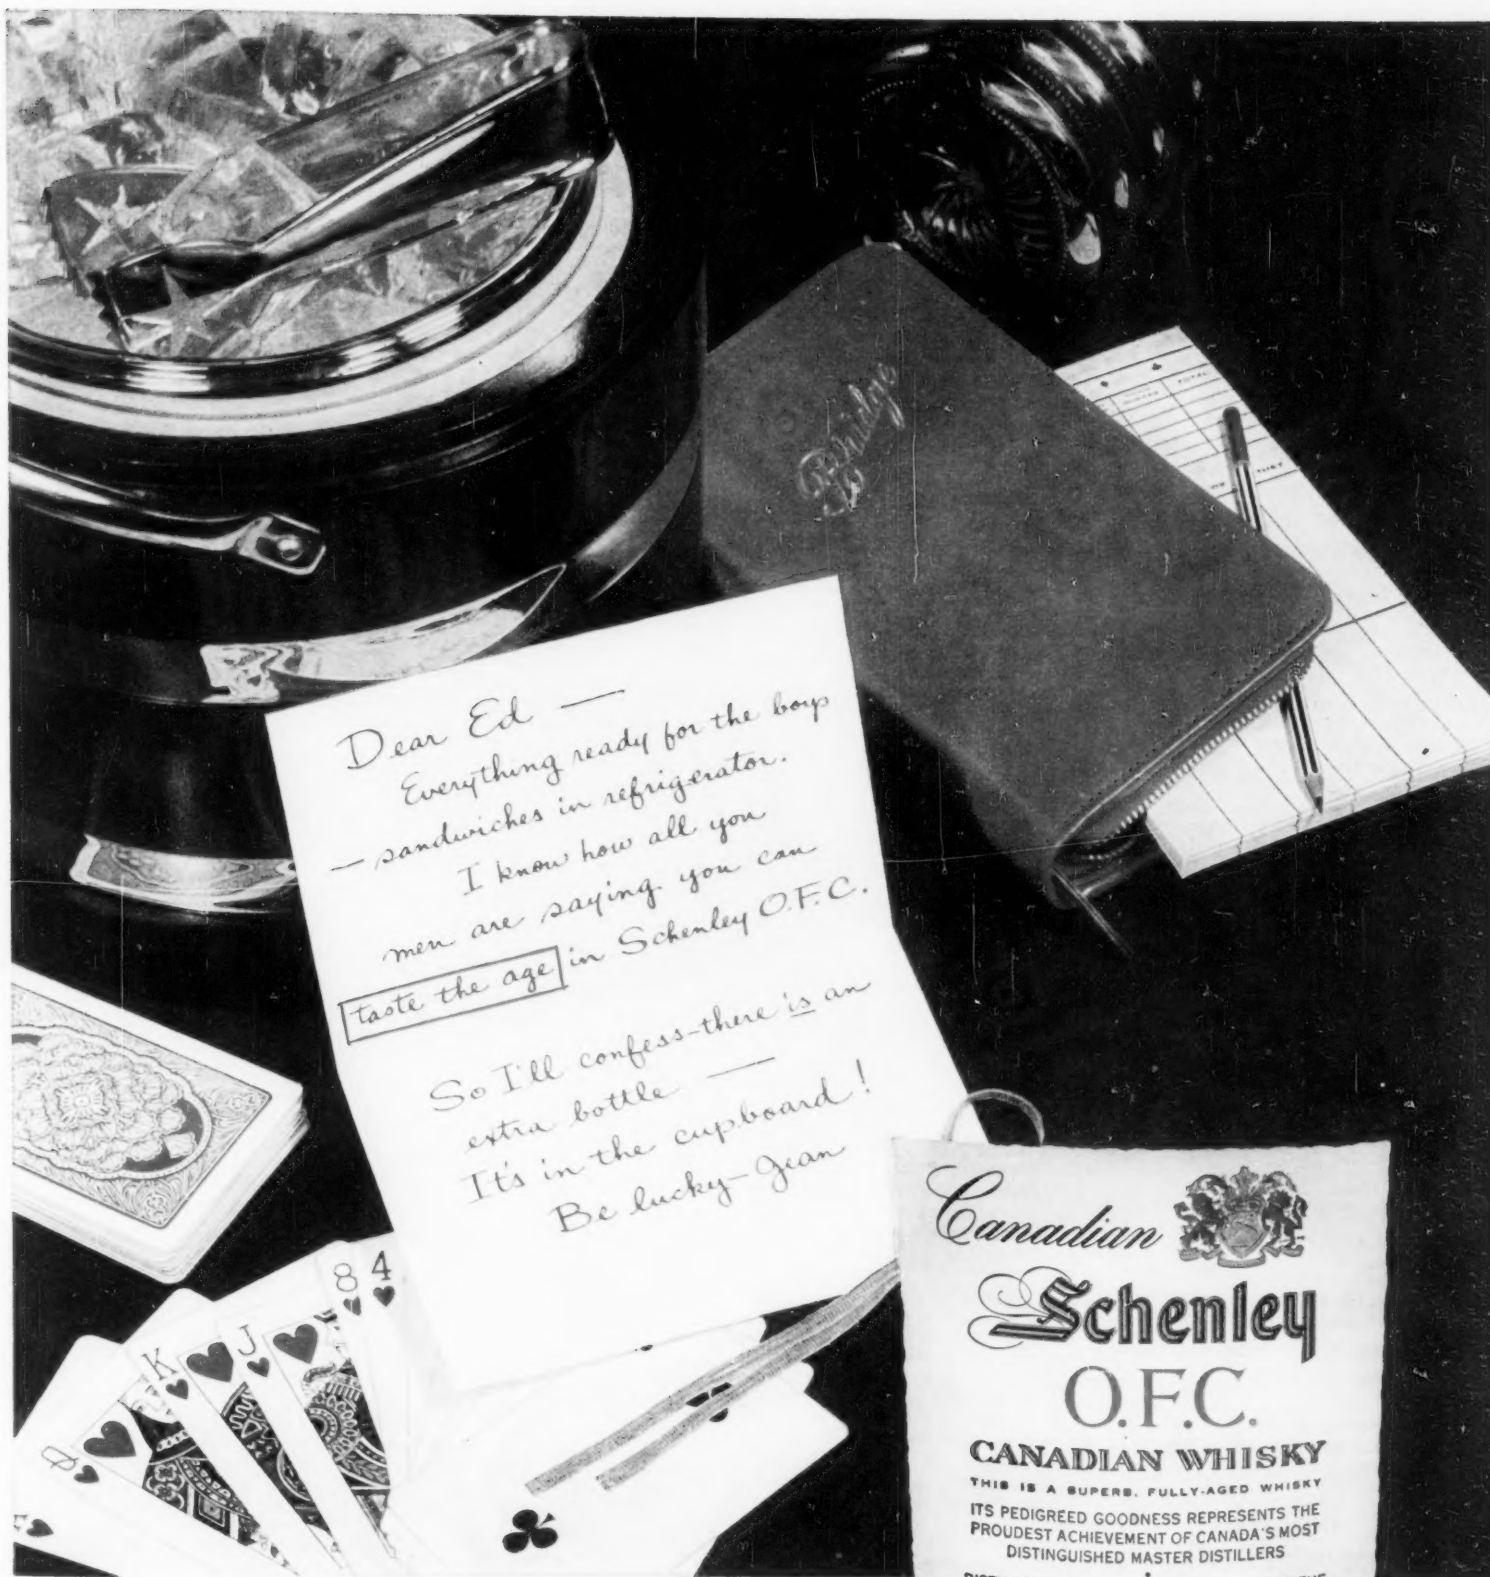 Bridge
TOTAL
WE
THEY
Dear Ed —
Everything ready for the boys
— sandwiches in refrigerator.
I know how all you
men are saying you can
taste the age in Schenley O.F.C.
So I'll confess-there is an
extra bottle —
It's in the cupboard!
Be lucky - Jean
8 4
K J
Q
Canadian
Schenley
O.F.C.
CANADIAN WHISKY
THIS IS A SUPERB, FULLY-AGED WHISKY
ITS PEDIGREED GOODNESS REPRESENTS THE
PROUDEST ACHIEVEMENT OF CANADA'S MOST
DISTINGUISHED MASTER DISTILLERS